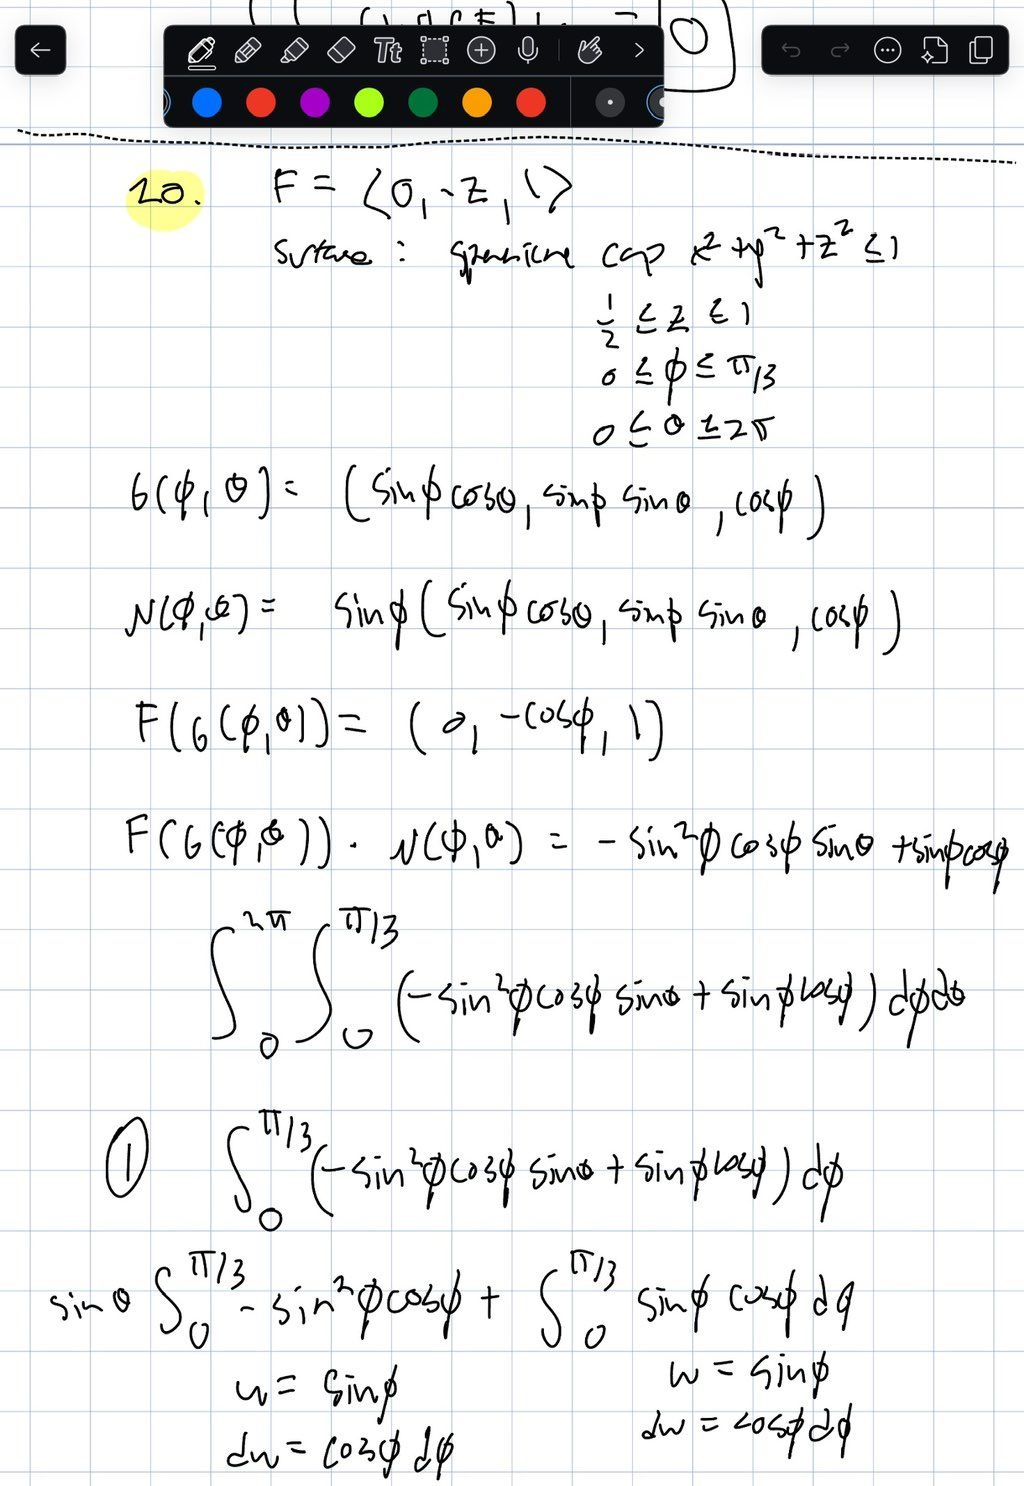 Tt
20. F = ⟨0, -z, 1⟩
Surface : spherical cap x² + y² + z² ≤ 1
1/2 ≤ z ≤ 1
0 ≤ ϕ ≤ π/3
0 ≤ θ ≤ 2π
G(ϕ, θ) = (sinϕ cosθ, sinϕ sinθ, cosϕ)
N(ϕ, θ) = sinϕ (sinϕ cosθ, sinϕ sinθ, cosϕ)
F(G(ϕ, θ)) = (0, -cosϕ, 1)
F(G(ϕ, θ)) · N(ϕ, θ) = - sin²ϕ cosϕ sinθ + sinϕ cosϕ
∫₀^2π ∫₀^π/3 (-sin²ϕ cosϕ sinθ + sinϕ cosϕ) dϕ dθ
① ∫₀^π/3 (-sin²ϕ cosϕ sinθ + sinϕ cosϕ) dϕ
sinθ ∫₀^π/3 - sin²ϕ cosϕ + ∫₀^π/3 sinϕ cosϕ dϕ
u = sinϕ
w = sinϕ
du = cosϕ dϕ
dw = cosϕ dϕ